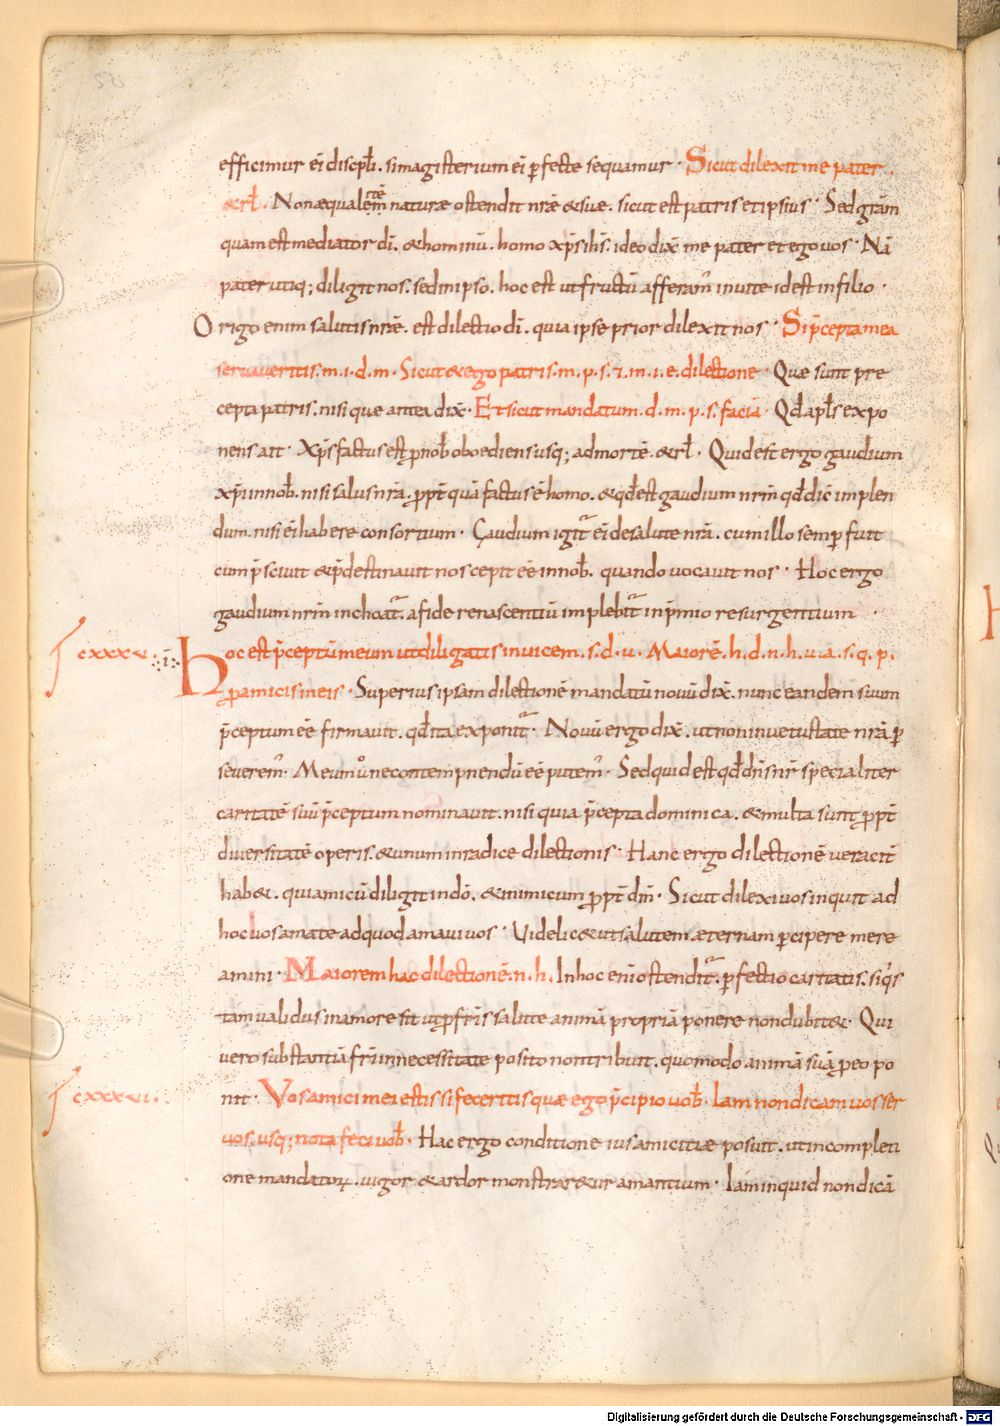 efficimur ei discpłi. si magisterium ei p̱fecte sequamur · Sicut dilexit me pater .
& rł. Non æqualem̅ naturæ ostendit nr̅æ & suæ. sicut est patris et ipsius · Sed gr̅am
quam est mediator di̅. & hominū. homo xp̅s ih̅s. ideo dix̅ me pater et ego vos · Nā
pater utiq; diligit nos. sed in ipso. hoc est ut fructū afferam᷒ in uite id est in filio ·
Origo enim salutis nr̅æ. est dilectio di̅. quia ipse prior dilexit nos · Si p̅cepta mea
servaveritis. m. i. d. m. Sicut & ego patris. m. p. s. & m. i. e. dilectione · Quæ sunt pre
cepta patris. nisi quæ antea dix̅. Et sicut mandatum. d. m. p. s. faciā · Qd̅ apłs expo
nens ait · Xp̅s factus est p̱ nob̅ oboediens usq; ad mortē. & rł. Quid est ergo gaudium
xp̅i in nob̅. nisi salus nr̅a. p̱pt̅ quā factus ē homo. & qd̅ est gaudium nr̅m qd̅ dic̅ implen
dum. nisi ei habere consortium · Gaudium igit᷒ ei de salute nr̅a. cum illo semp̱ fuit
cum p̅sciuit & p̅destinauit nos cepit eē in nob̅. quando uocauit nos · Hoc ergo
gaudium nr̅m inchoat᷒. a fide renascentiū implebit᷒ in p̅mio resurgentium ·
cxxxv. ·i· Hoc est p̅ceptū meum ut diligatis inuicem. s. d. u. Maiorē. h. d. n. h. u. a. s. q. p.
p̱ amicis meis · Superius ipsam dilectionē mandatū nouū dix̅. nunc eandem suum
p̅ceptum eē firmauit. qd̅ ita exponit᷒ · Nouū ergo dix̅. ut non in uetustate nr̅a p̱
seuerem᷒ · Meum u̥ ne contempnendū eē putem᷒ · Sed quid est qd̅ dn̅s nr̅ specialiter
caritatē suū p̅ceptum nominauit. nisi quia p̅cepta dominica. & multa sunt p̱pt̅
diuersitatē operis. & unum in radice dilectionis · Hanc ergo dilectionē veracit̅
hab&. qui amicū diligit in dō. & inimicum p̱pt̅ dm̅ · Sicut dilexi uos inquit ad
hoc uos amate ad quod amaui uos · Videlic& ut salutem æternam p̱cipere mere
amini · Maiorem hac dilectionē. n. h. In hoc eni̅ ostendit᷒. p̱fectio caritatis. si q̇s
tam validus in amore sit ut p̱ fr̅is salute animā propriā ponere non dubit& · Qui
vero substantiā fr̅i in necessitate posito non tribuit. quomodo animā suā p̱ eo po
cxxxvi. nit · Vos amici mei estis si feceritis quæ ego p̅cipio uob̅. Iam non dicam uos ser
uos. usq; nota feci uob̅ · Hac ergo conditione ius amicitiæ posuit. ut in completi
one mandatoꝝ. uigor & ardor monstrar&ur amantium · Iā inquid non dicā
Digitalisierung gefördert durch die Deutsche Forschungsgemeinschaft - DFG